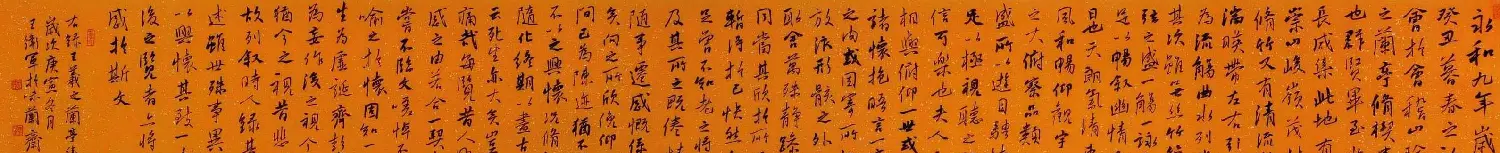 永和九年歲
癸丑暮春之
會於會稽山
之蘭亭脩禊
也群賢畢至
長咸集此地有
崇山峻嶺茂
脩竹又有清流
湍暎帶左右引
為流觴曲水列
其次雖無絲竹
弦之盛一觴一詠
足以暢叙幽情
日也天朗氣清
風和暢仰觀宇
之大俯察品類
盛所以遊目騁
足以極視聽之
信可樂也夫人
相與俯仰一世或
諸懷抱晤言一
之內或因寄所
放浪形骸之外
取舍萬殊靜躁
同當其欣於所
蹔得於己快然
足曾不知老之將
及其所之既倦
隨事遷感慨係
矣向之所欣俛仰
間已為陳迹猶不
不以之興懷況脩
隨化終期以盡古
云死生亦大矣豈
痛哉每覽昔人
感之由若合一契
嘗不臨文嗟悼不
喻之於懷固知一
生為虛誕齊彭
為妄作後之視今
猶今之視昔悲
故列叙時人錄其
述雖世殊事異
以興懷其致一
後之覽者亦將
感於斯文
右錄王羲之蘭亭集
歲次庚寅冬月
蘭齋